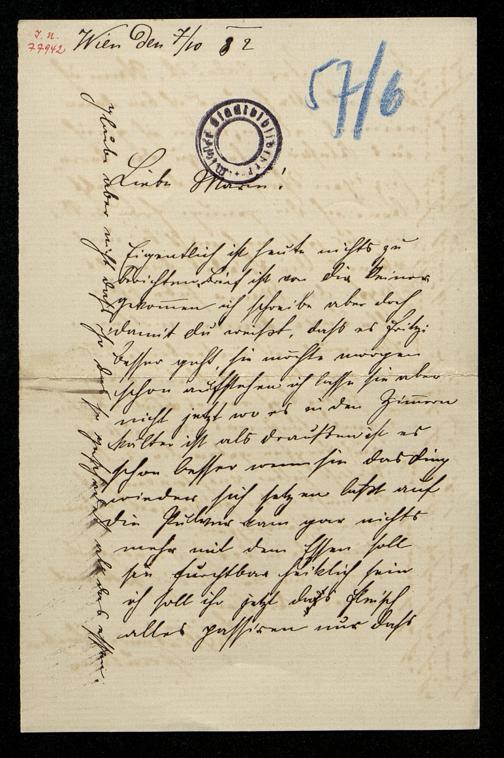 J. n.
77942
Wien den 7/10 82
57/6
Wiener Stadtbibliothek
Liebe Marie!
Eigentlich ist heute nichts zu
berichten Brief ist von dir keiner
gekommen ich schreibe aber doch
damit du weißt, daß es Fritzi
besser geht, sie möchte morgen
schon aufstehen ich lasse sie aber
nicht jetzt wo es in den Zimmern
kälter ist als draußen ist es
schon besser wenn sie das Ding
wieder sich setzen laßt auf
die Pulver kam gar nichts
mehr mit dem Essen soll
sie furchtbar heiklich sein
ich soll ihr jetzt das Fleisch
alles passiren nur daß
glaube aber nicht daß ihr das so als das essen.